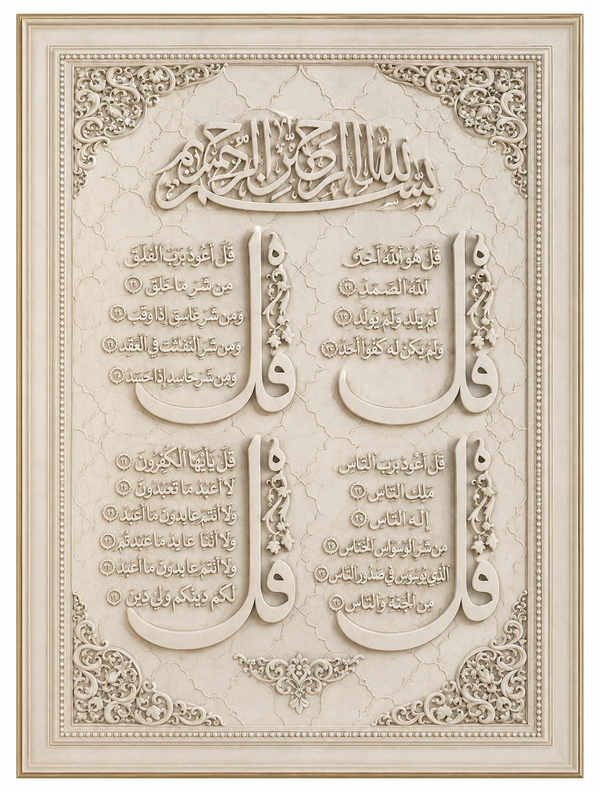 بسم الله الرحمن الرحيم
قل
قُلْ هُوَ اللَّهُ أَحَدٌ
اللَّهُ الصَّمَدُ
لَمْ يَلِدْ وَلَمْ يُولَدْ
وَلَمْ يَكُنْ لَهُ كُفُوًا أَحَدٌ
قل
قُلْ أَعُوذُ بِرَبِّ الْفَلَقِ
مِن شَرِّ مَا خَلَقَ
وَمِن شَرِّ غَاسِقٍ إِذَا وَقَبَ
وَمِن شَرِّ النَّفَّٰثَٰتِ فِي الْعُقَدِ
وَمِن شَرِّ حَاسِدٍ إِذَا حَسَدَ
قل
قُلْ أَعُوذُ بِرَبِّ النَّاسِ
مَلِكِ النَّاسِ
إِلَٰهِ النَّاسِ
مِن شَرِّ الْوَسْوَاسِ الْخَنَّاسِ
الَّذِي يُوَسْوِسُ فِي صُدُورِ النَّاسِ
مِنَ الْجِنَّةِ وَالنَّاسِ
قل
قُلْ يَٰأَيُّهَا الْكَٰفِرُونَ
لَا أَعْبُدُ مَا تَعْبُدُونَ
وَلَا أَنتُمْ عَابِدُونَ مَا أَعْبُدُ
وَلَا أَنَا عَابِدٌ مَا عَبَدتُّمْ
وَلَا أَنتُمْ عَابِدُونَ مَا أَعْبُدُ
لَكُمْ دِينُكُمْ وَلِيَ دِينِ